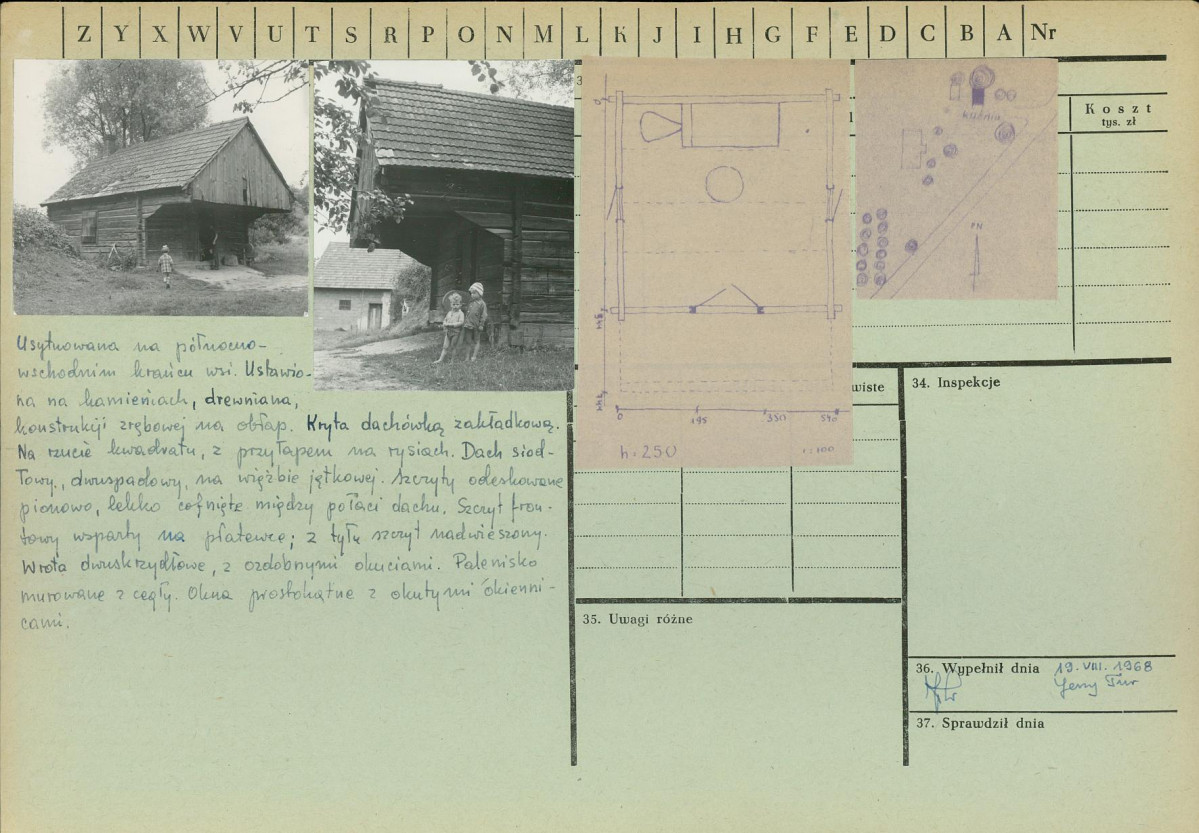 Z Y X W V U T S R P O N M L K J I H G F E D C B A Nr
Koszt
tys. zł
kuźnia
PN
0
195
350
540
h: 250
1:100
Usytuowana na północno-
wschodnim krańcu wsi. Ustawio-
na na kamieniach, drewniana,
konstrukcji zrębowej na obłap. Kryta dachówką zakładkową.
Na rzucie kwadratu, z przyłapem na rysiach. Dach siod-
łowy, dwuspadowy, na więźbie jętkowej. Szczyty odeskowane
pionowo, lekko cofnięte między połaci dachu. Szczyt fron-
towy wsparty na płatewce; z tyłu szczyt nadwieszony.
Wrota dwuskrzydłowe, z ozdobnymi okuciami. Palenisko
murowane z cegły. Okna prostokątne z okutymi okienni-
cami.
wiste
34. Inspekcje
35. Uwagi różne
36. Wypełnił dnia 19.VIII.1968
Jerzy Tur
37. Sprawdził dnia